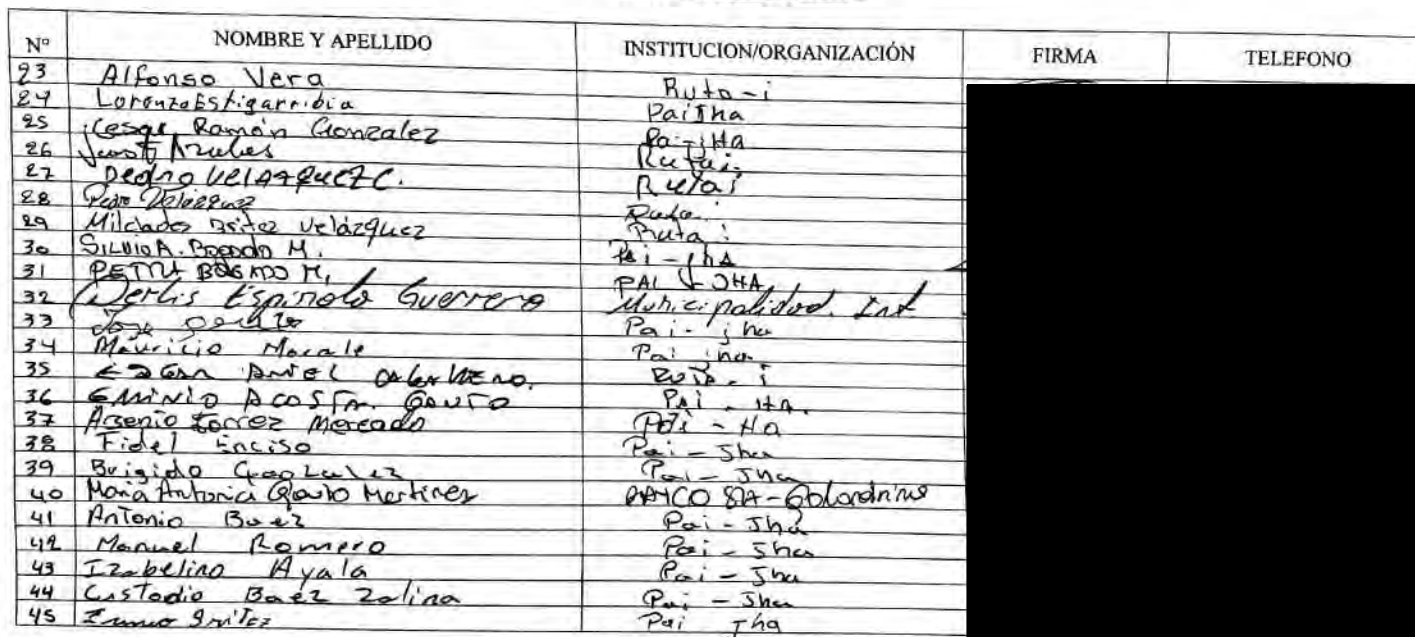 Nº NOMBRE Y APELLIDO INSTITUCION/ORGANIZACIÓN FIRMA TELEFONO
23 Alfonso Vera Ruta-i
24 Lorenzo Estigarribia Pai Jha
25 Cesar Ramón Gonzalez Pa-jHa
26 Rutai
27 Pedro Velazquez C. Rutai
28 Pedro Velazquez Ruta i
29 Milciades Britez Velázquez Ruta i
30 SILVIO A. Bogado M. Pai-jhA
31 PETRA BOGADO M. PAI JHA
32 Derlis Espinola Guerrero Municipalidad. Int
33 Jose Pai-jha
34 Mauricio Morale Pai jha
35 Ruta-i
36 ACOSTA PAI-HA.
37 Arsenio Torrez Mereado Pai-Ha
38 Fidel Enciso Pai-Jha
39 Brigido Gonzalez Pai-Jha
40 Maria Antonia Gauto Martinez SA-Golondrina
41 Antonio Baez Pai-Jha
42 Manuel Romero Pai-Jha
43 Izabelino Ayala Pai-Jha
44 Custodio Baez Zalina Pai-Jha
45 Pai Jha